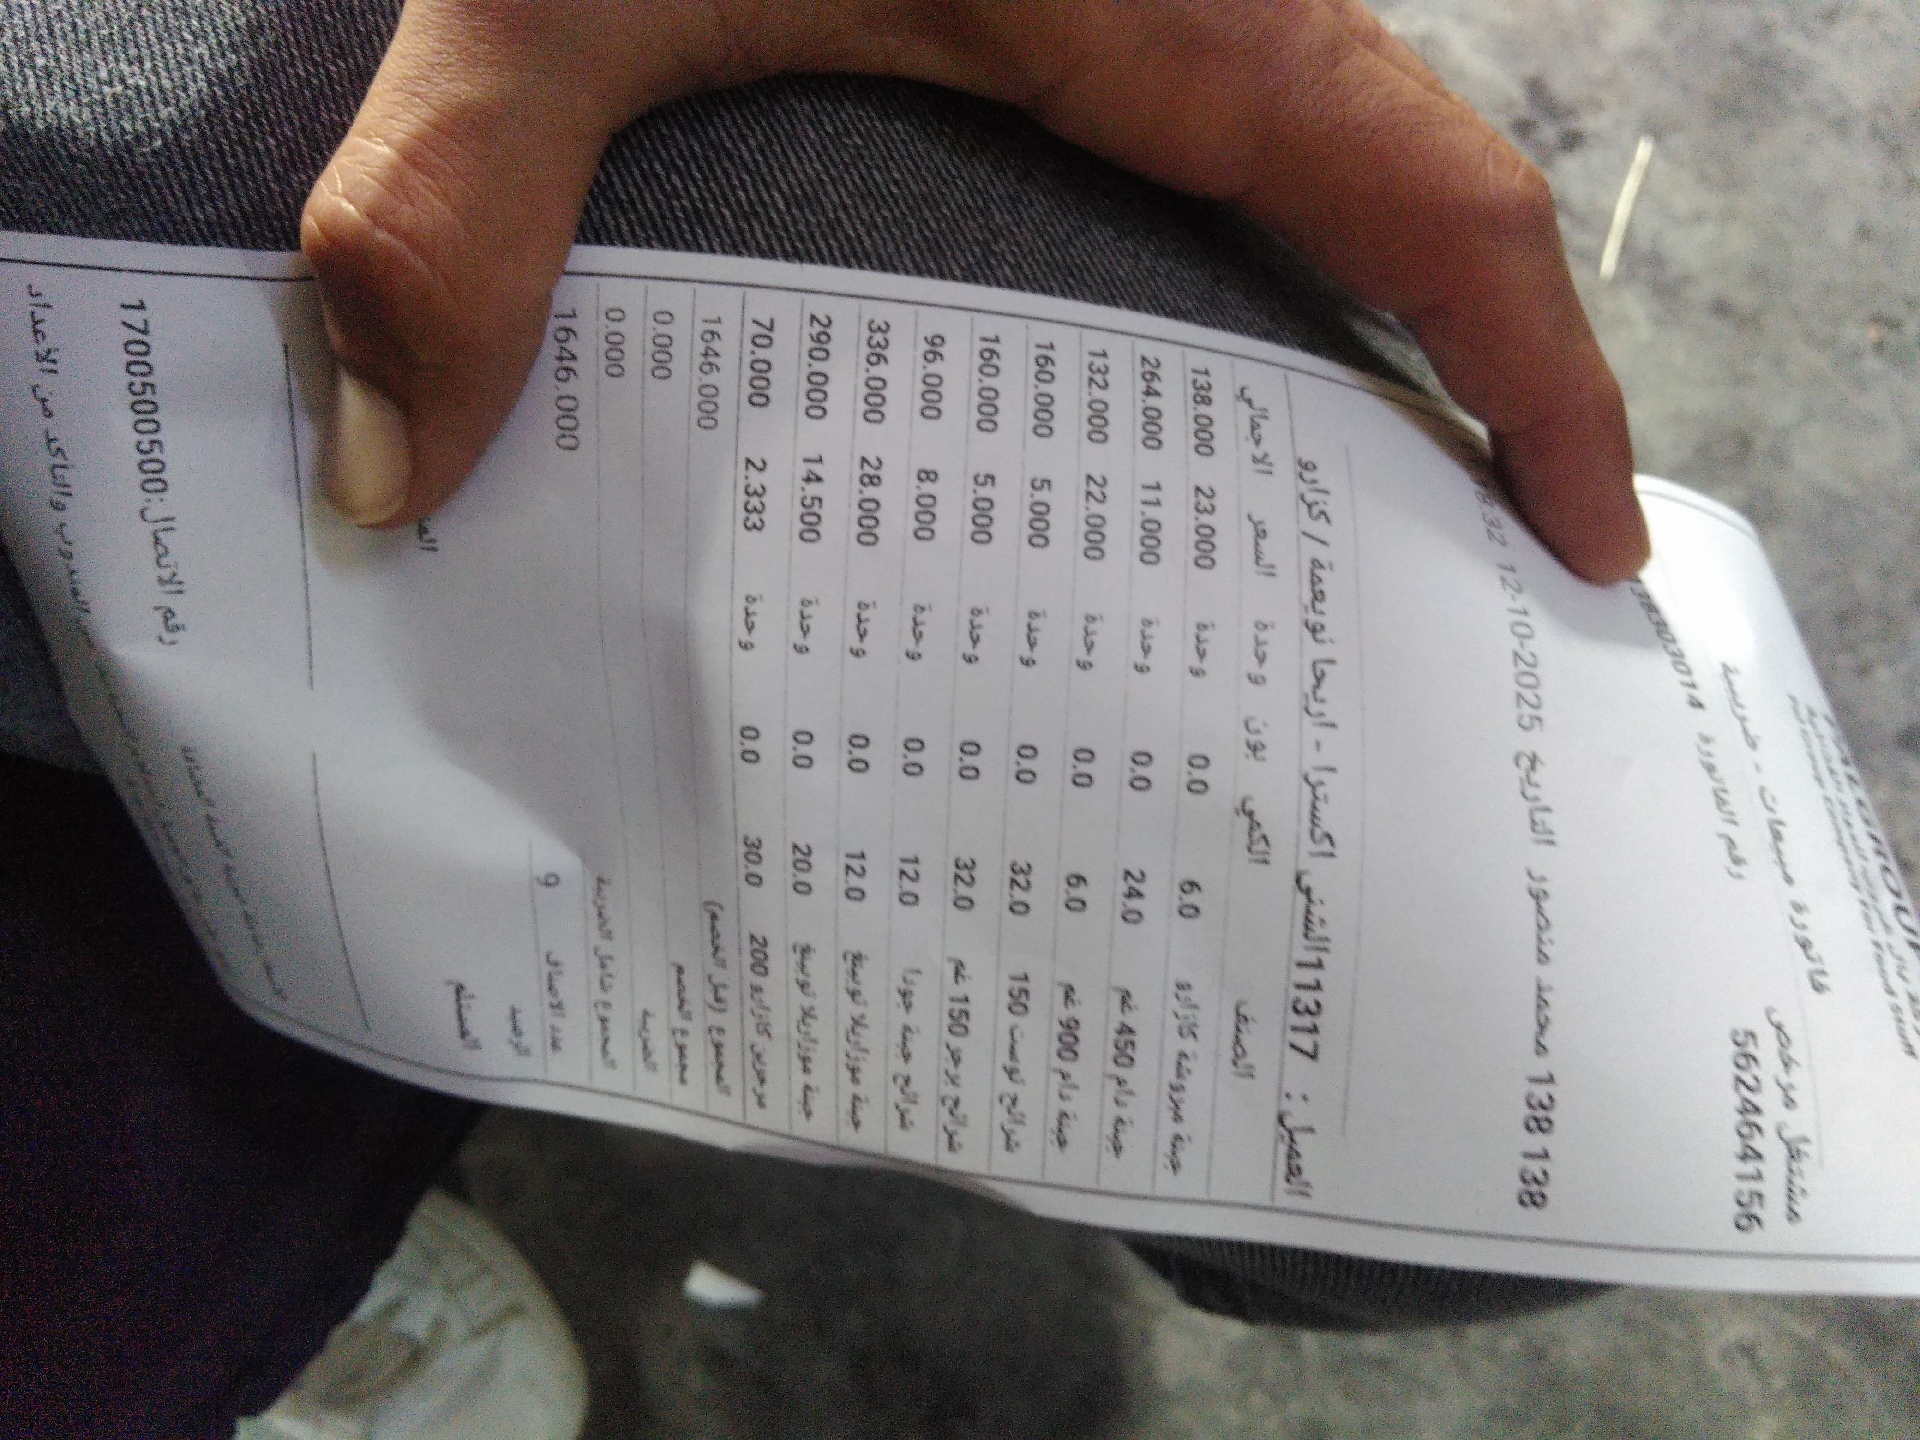 فاتورة مبيعات - ضريبية
مشتغل مرخص
562464156
رقم الفاتورة
138 138 محمد منصور التاريخ 2025-10-12
العميل : 11317الشني اكسترا - اريحا نويعمة / كزارو
الصنف الكمي بون وحدة السعر الاجمالي
جبنة مبروشة كازارو 6.0 0.0 وحدة 23.000 138.000
جبنة دام 450 غم 24.0 0.0 وحدة 11.000 264.000
جبنة دام 900 غم 6.0 0.0 وحدة 22.000 132.000
شرائح توست 150 32.0 0.0 وحدة 5.000 160.000
شرائح برجر 150 غم 32.0 0.0 وحدة 5.000 160.000
شرائح جبنة جودا 12.0 0.0 وحدة 8.000 96.000
جبنة موزاريلا توسيع 12.0 0.0 وحدة 28.000 336.000
جبنة موزاريلا توسيع 20.0 0.0 وحدة 14.500 290.000
مرجرين كازارو 200 30.0 0.0 وحدة 2.333 70.000
المجموع (قبل الخصم) 1646.000
مجموع الخصم 0.000
الضريبة 0.000
المجموع شامل الضريبة 1646.000
عدد الاصناف 9
الرصيد
المستلم
رقم الاتصال:1700500500
المندوب والتأكد من الاعداد